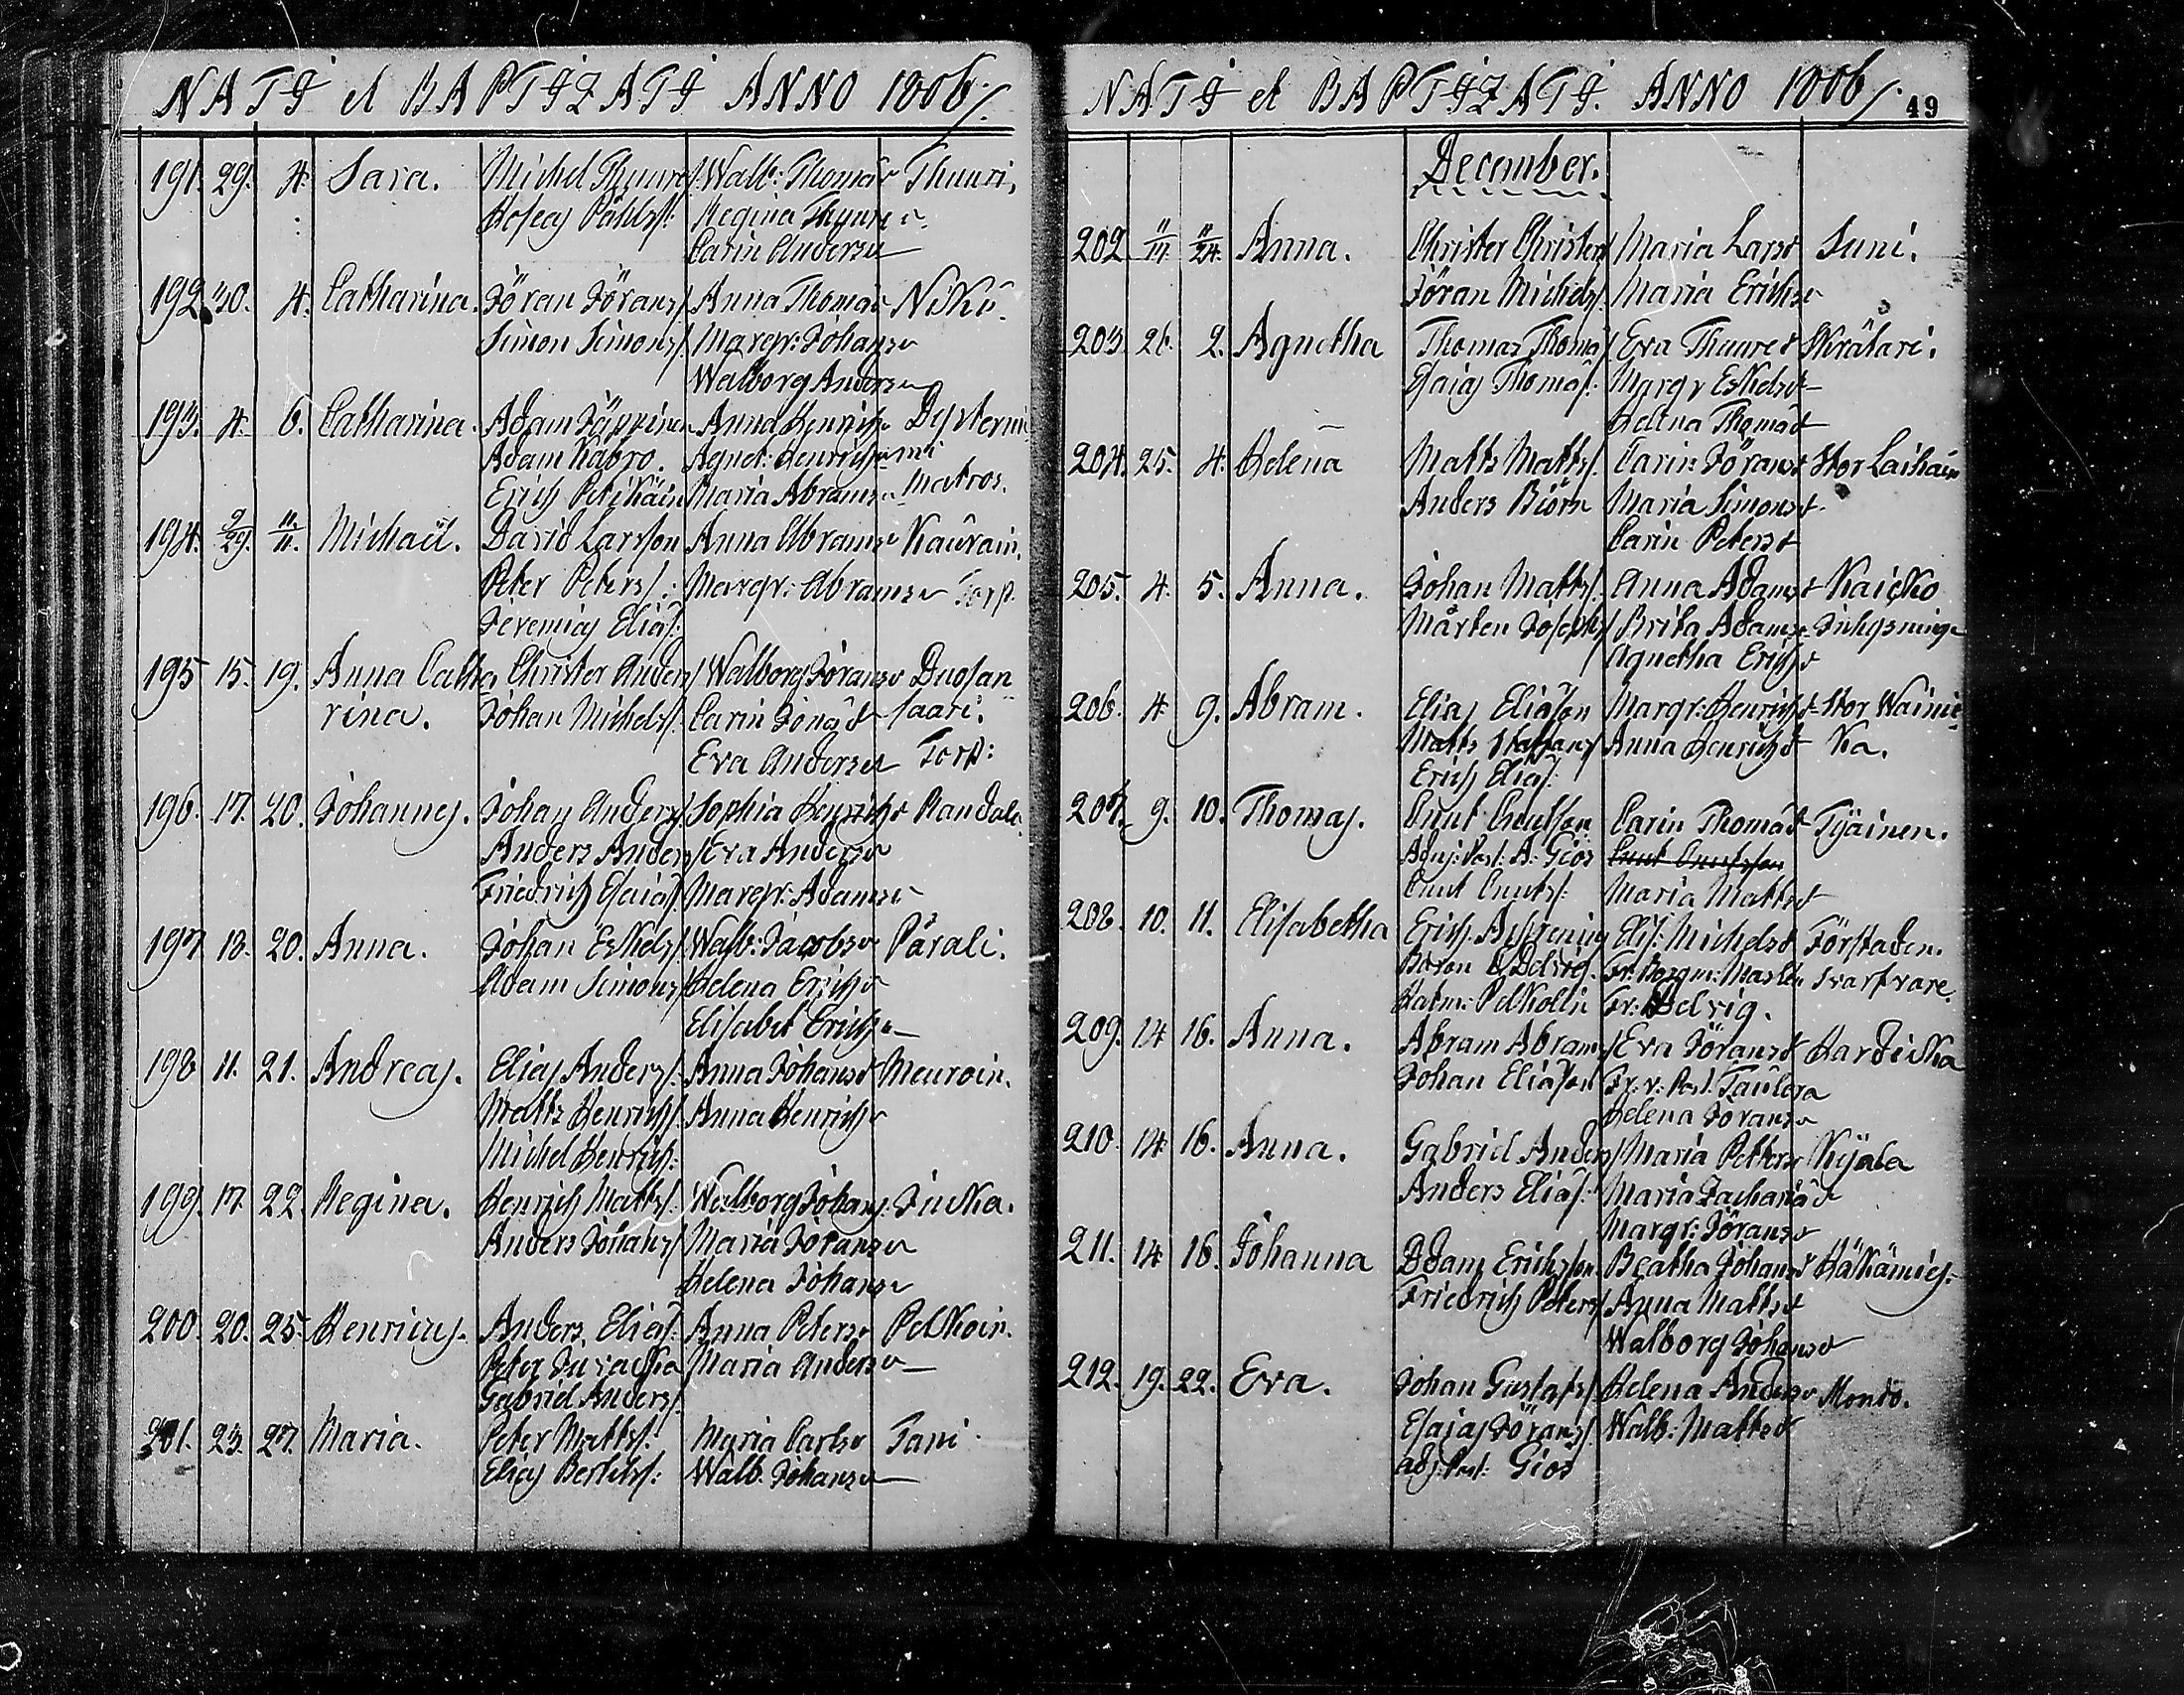 NATI et BAPTIZATI ANNO 1806/.
191. 29. 4. Sara. Michel Thuure/. Walb: Thomäs Thuuri,
Hoseas Påhlss: Regina Thuure
Carin Anders
192. 30. 4. Catharina. Jöran Jörans/ Anna Thomäs Niku
Simon Simons/. Margr: Johans
Walborg Anders
193. 4. 6. Catharina. Adam Jäppinen Anna Henrichs
Adam Kabro. Agnet: Henrichs
Erich Maria Abrams Matros.
194. 9/29. 11/11. Michaël. David Larsson Anna Abrams Kaurain,
Peter Peters/. Margr: Abrams Torp.
Jeremias Eliæ/.
195 15. 19. Anna Catha Christer Anders/ Walborg Jörans Duosan
rina. Johan Michels/. Carin Jonæ saari.
Eva Anders Torp:
196. 17. 20. Johannes. Johan Anders/. Sophia Henrichs Randala.
Anders Anders/ Eva Anders
Friedrich Esaiæ/. Margr: Adams
197 13. 20. Anna. Johan Eskels/. Walb: Jacobs Pärali.
Adam Simons/ Helena Erichs
Elisabet Erichs
198 11. 21. Andreas. Elias Anders/. Anna Johans Meuroin.
Matts Henrichs/. Anna Henrichs
Michel Henrichs:
199. 17. 22. Regina. Henrich Matts/. Walborg Johans. Jucka.
Anders Johans/ Maria Jörans
Helena Johans
200. 20. 25. Henricus. Anders Eliæ/. Anna Peters Pelkoin.
Peter Maria Anders
Gabriel Anders/.
201. 23. 27. Maria. Peter Matts/. Maria Carls Tani
Elias Bertils/: Walb: Johans
NATI et BAPTIZATI. ANNO 1806/. 49
December.
202 11/11. 11/24. Anna. Christer Christers/ Maria Lars Suni.
Jöran Michels/. Maria Erichs
203. 26. 2. Agnetha Thomas Thomæ/ Eva Thuure Skrätari.
Esaias Thomæ/. Margr Eskels
Helena Thomæ
204. 25. 4. Helena Matts Matts/. Carin Jörans Stor Laihain
Anders Biörn Maria Simons
Carin Peters
205. 4. 5. Anna. Johan Matts/. Anna Adams Kaicko
Mårten Josephs/ Brita Adams
Agnetha Erichs
206. 4 9. Abram. Elias Eliæson Margr: Henrichs Stor Wainic
Matts Staffans/ Anna Henrichs ka.
Erich Eliæ/.
207. 9. 10. Thomas. Cnut Cnutson Carin Thomæ Tyäinen.
Aduj: Past: A: Giös Cnut Cnutsson
Cnut Cnuts/: Maria Matts
208. 10. 11. Elisabetha Erich Elis: Michels Förstaden.
Baron Svarfvare.
Hatm: Pelkollin Fr:
209. 14 16. Anna. Abram Abrams/ Eva Jörans Hardicka
Johan Eliæson Fr. v: Past:
Helena Jörans
210. 14 16. Anna. Gabriel Anders/ Maria Petters Kyala
Anders Eliæ/. Maria Zachariæ
Margr: Jörans
211. 14 16. Johanna Adam Erichsson. Beatha Johans
Friedrich Peters/ Anna Matts
Walborg Johans
212. 19. 22. Eva. Johan Gustafs/ Helena Anders Mondo.
Esaias Jörans/. Walb: Matts
adj: Past: Giös